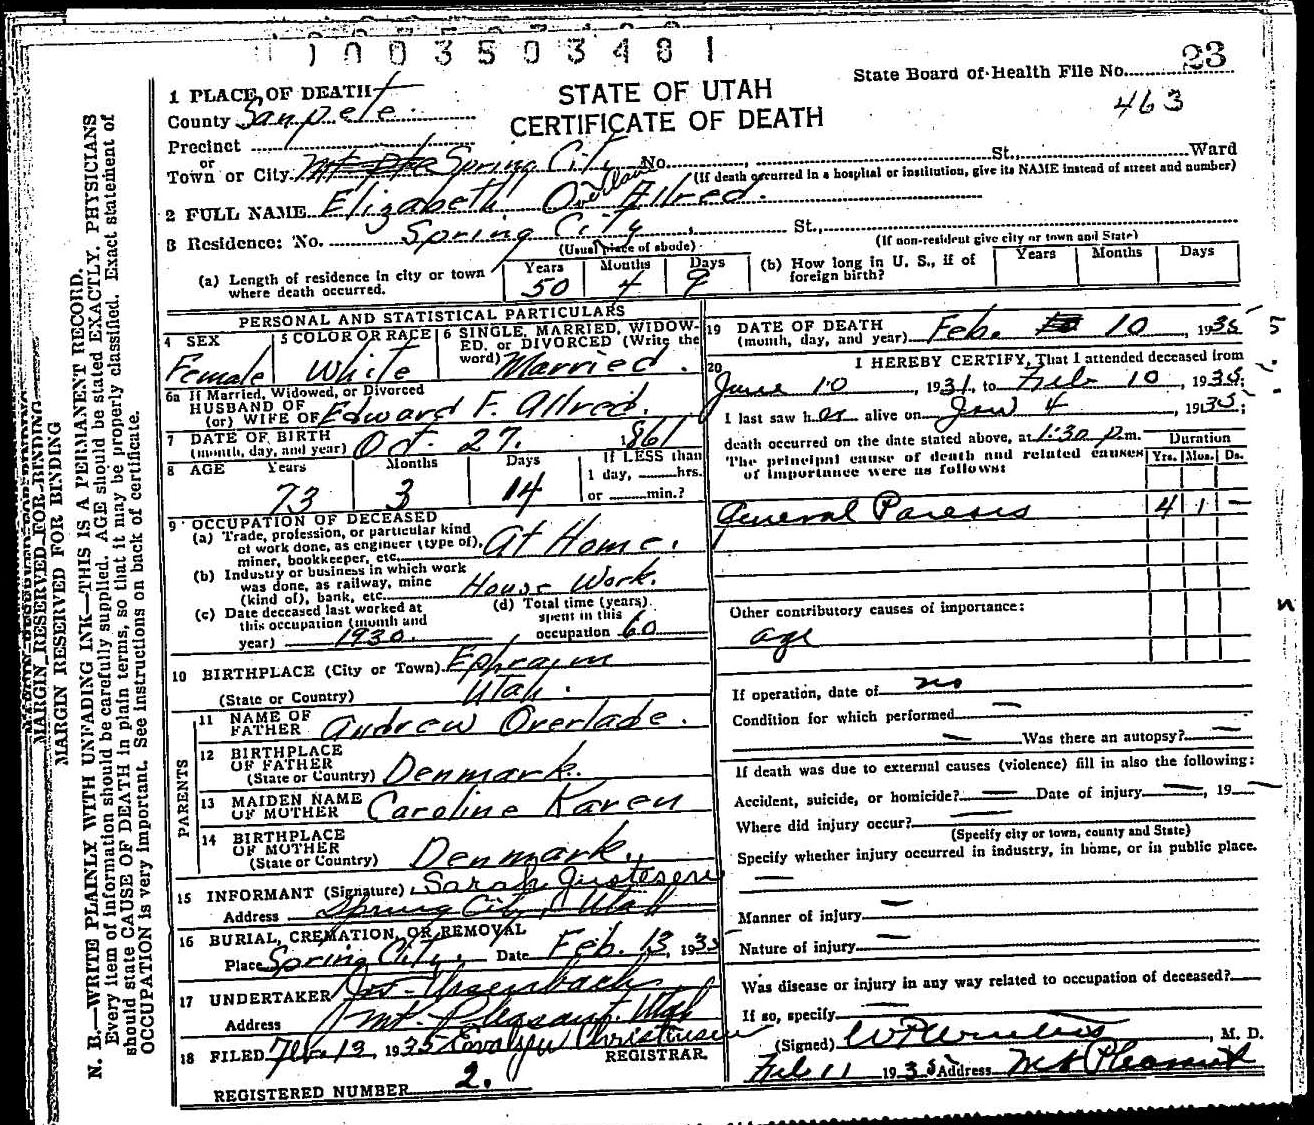 1003503481
23
State Board of Health File No.
463
STATE OF UTAH
CERTIFICATE OF DEATH
1 PLACE OF DEATH
County Sanpete.
Precinct
or
Town or City Spring City No. St., Ward
(If death occurred in a hospital or institution, give its NAME instead of street and number)
2 FULL NAME Elizabeth Overlade Allred.
3 Residence: No. Spring City St.,
(Usual place of abode) (If non-resident give city or town and State)
(a) Length of residence in city or town where death occurred. Years 50 Months 4 Days 9
(b) How long in U. S., if of foreign birth? Years Months Days
PERSONAL AND STATISTICAL PARTICULARS
4 SEX Female
5 COLOR OR RACE White
6 SINGLE, MARRIED, WIDOWED. or DIVORCED (Write the word) Married.
6a If Married, Widowed, or Divorced
HUSBAND OF
(or) WIFE OF Edward F. Allred.
7 DATE OF BIRTH
(month, day, and year) Oct. 27. 1861
8 AGE Years 73 Months 3 Days 14 If LESS than 1 day, hrs. or min.?
9 OCCUPATION OF DECEASED
(a) Trade, profession, or particular kind
of work done, as engineer (type of),
miner, bookkeeper, etc. At Home.
(b) Industry or business in which work
was done, as railway, mine
(kind of), bank, etc. House Work.
(c) Date deceased last worked at
this occupation (month and
year) 1930.
(d) Total time (years)
spent in this
occupation 60
10 BIRTHPLACE (City or Town) Ephraim
(State or Country) Utah.
PARENTS
11 NAME OF FATHER Andrew Overlade.
12 BIRTHPLACE OF FATHER
(State or Country) Denmark.
13 MAIDEN NAME OF MOTHER Caroline Karen
14 BIRTHPLACE OF MOTHER
(State or Country) Denmark.
15 INFORMANT (Signature) Sarah Justesen
Address Spring City, Utah
16 BURIAL, CREMATION, OR REMOVAL
Place Spring City. Date Feb. 13, 1935
17 UNDERTAKER Jos.
Address Mt. Pleasant. Utah
18 FILED Feb. 13, 1935 Evalyn Christensen
REGISTRAR.
REGISTERED NUMBER 2.
19 DATE OF DEATH
(month, day, and year) Feb. 10, 1935
20 I HEREBY CERTIFY, That I attended deceased from
June 10, 1931, to Feb 10, 1935;
I last saw her alive on Jan 4, 1935;
death occurred on the date stated above, at 1:30 p.m.
The principal cause of death and related causes
of importance were as follows:
Duration
Yrs. Mos. Ds.
General Paresis 4 1 –
Other contributory causes of importance:
age
If operation, date of no
Condition for which performed —
— Was there an autopsy? —
If death was due to external causes (violence) fill in also the following:
Accident, suicide, or homicide? — Date of injury —, 19 —
Where did injury occur? —
(Specify city or town, county and State)
Specify whether injury occurred in industry, in home, or in public place.
—
Manner of injury —
Nature of injury —
Was disease or injury in any way related to occupation of deceased?
If so, specify —
(Signed) M. D.
Feb 11 1935 Address Mt Pleasant
MARGIN RESERVED FOR BINDING
MARGIN RESERVED FOR BINDING
N. B.—WRITE PLAINLY WITH UNFADING INK—THIS IS A PERMANENT RECORD.
Every item of information should be carefully supplied. AGE should be stated EXACTLY. PHYSICIANS
should state CAUSE OF DEATH in plain terms, so that it may be properly classified. Exact statement of
OCCUPATION is very important. See instructions on back of certificate.